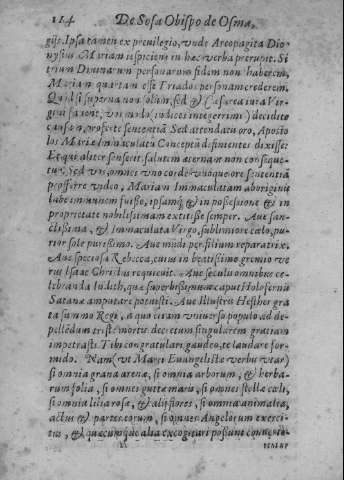 114 De Sosa Obispo de Osma,
giss. Ipsa tamen ex preuilegio, vnde Areopagita Dio-
nysius Mariam inspiciens in hæc verba prorupit. Si
trium Diuinarum personarum fidem non haberem,
Mariam quartam esse Triados personam crederem.
Quid si superna non solum, sed & Cæsarea in
gini fauore, vn modo (indices integerrimi) decidito
causam, proferte sententiã Sed attendat vro, Aposto
los Mariæ Immaculatũ Conceptũ definientes dixisse:
Et qui aliter senserit salutem æternam non conseque-
tur, sed vt omnes vno corde vnoque ore sententiã
proferre video, Mariam Immaculatam ab origine
labe immunem fuisse, ipsamq; in possessione & in
proprietate nobilissimam extitisse semper. Aue san-
ctissima, & Immaculata Virgo, sublimiore cælo, pu-
rior sole purissimo. Aue mũdi per filium reparatrix.
Aue speciosa Rebecca, cuius in beatissimo gremio ve
rus Isaac Christus requieuit. Aue seculis omnibus ce-
lebranda Iudith, quæ superbissimum caput Holofernis
Satanæ amputare potuisti. Aue Illustris Hesther gra
ta summo Regi, a quo etiam vniuerso populo ad de-
pellẽdam tristẽ mortis decretum singularem gratiam
impetrasti. Tibi congratulari gaudeo, te laudare for-
mido. Nam (vt Magi Euangelistæ verbis vtar)
si omnia grana arenæ, si omnia arborum, & herba-
rum folia, si omnes guttæ maris, si omnes stellæ cæli,
si omnia lilia rosæ, & alij flores, si omnia animalia,
actus & partes eorum, si omnes Angelorum exerci-
tus, & quæcumque alia excogitari possunt conuerte-